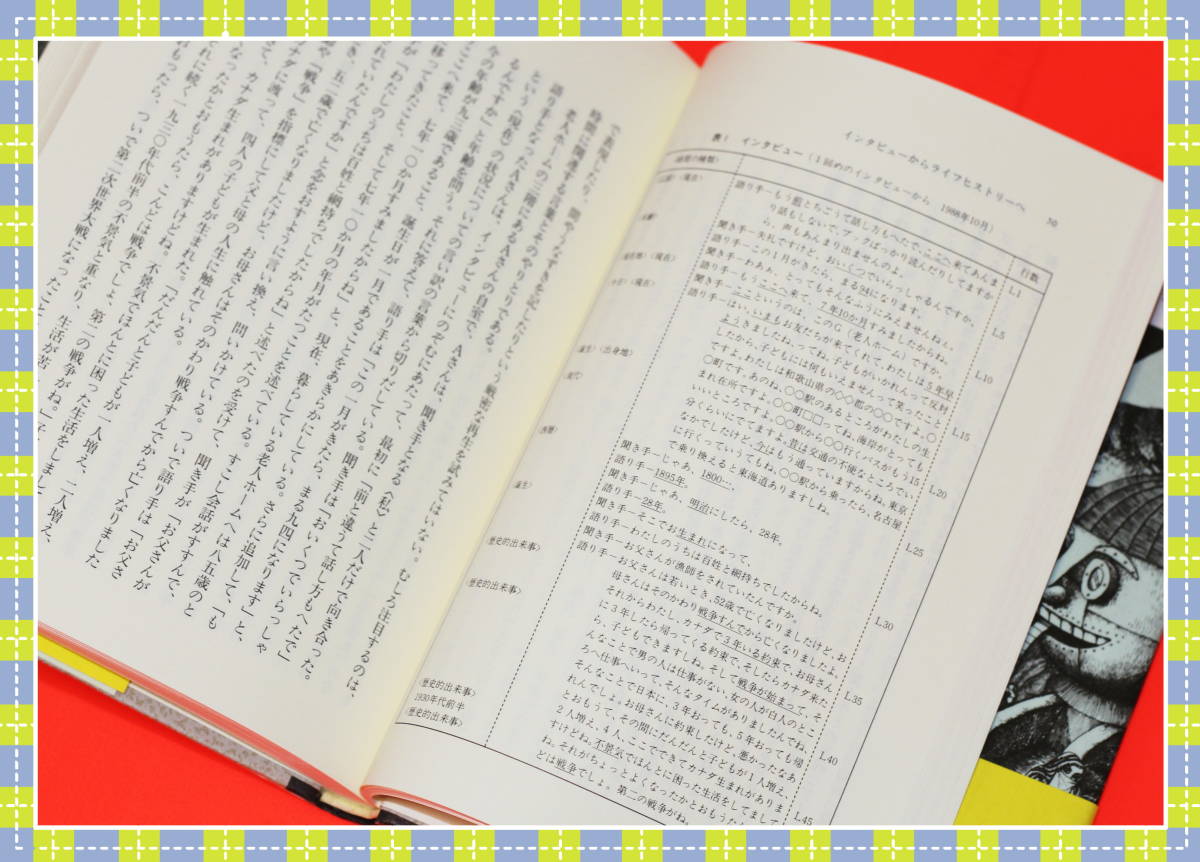 インタビューからライフヒストリーへ 50
表1 インタビュー（1回めのインタビューから 1988年10月）
行数
語り手―もう前とちごうて話し方もへたで、ここへ来てあんま
り話もしないで、ブックばっかり読んだりしてますか
ら、声もあんまり出ませんのよ。
聞き手―失礼ですけど、おいくつでいらっしゃるんですか。
語り手―この1月がきたら、まる94になります。
聞き手―わあぁ、とってもそんなふうにみえませんねぇ。
語り手―もうここへ来て、7年10か月すみましたからね。
聞き手―ここというのは、このG（老人ホーム）ですか。
語り手―はい。いまもお友だちが来てくれて、わたしは5年早
ようきましたね、ってね。子どもがいかれんって反対
したから、子どもには何もいえませんって笑ったこと
ですよ。わたしは和歌山県の○○郡の○○ですよ。○
○町です。あのね、○○駅のあるところがわたしの生
まれ在所ですよ。○○町□□ってね、海岸がとっても
いいところですよ。○○駅から○○行くバスがもう15
分ぐらいにでてますよ。昔は交通の不便なところでい
なかでしたけど、今はもう通っていますからね。東京
に行くっていうてもね、○○駅から乗ったら、名古屋
で乗り換えると東海道ありますしね。
聞き手―じゃあ、1800…、
語り手―1895年。
聞き手―じゃあ、明治にしたら、28年。
語り手―28年。
聞き手―そこでお生まれになって、
語り手―わたしのうちは百姓と網持ちでしたからね。
聞き手―お父さんが漁師をされていたんですか。
語り手―お父さんは若いとき、52歳で亡くなりましたけど、お
母さんはそのかわり戦争すんでから亡くなりましたよ。
それからわたし、カナダで3年いる約束で、お母さん
に3年したら帰ってくる約束で、そしたらカナダ来た
ら、子どもできますしね。そして戦争が始まって、そ
んなことで男の人は仕事がない、女の人が白人のとこ
ろへ仕事へいって、そんなタイムがありましたんでね、
そんなことで日本に、3年おっても、5年おっても帰
れんでしょ。お母さんに約束したけど、悪かったなあ
とおもうて、その間にだんだんと子どもが1人増え、
2人増え、4人、ここでできてカナダ生まれがありま
すけどね。不景気でほんとに困った生活をしてまして
ね。それがちょっとよくなったかとおもうた
とは戦争でしょ。第二の戦争がね。
L.1
L.5
L.10
L.15
L.20
L.25
L.30
L.35
L.40
L.45
（現在）
〈現在〉
〈出身地〉
〈歴史的出来事〉
〈歴史的出来事〉
〈歴史的出来事〉
1930年代前半
〈歴史的出来事〉
で表現したり、間やうなずきを記したりという厳密な再生を試みてはいない。むしろ注目するのは、
時間に関連する言葉とそのやりとりである。
老人ホームの三階にあるAさんの自室で、Aさんは、聞き手となる〈私〉と二人だけで向き合った。
語り手となったAさんは、インタビューにのぞむにあたって、最初に「前と違うて話し方もへたで」
という〈現在〉の状況についての言い訳の言葉から切りだしている。聞き手は「おいくつでいらっしゃ
るんですか」と年齢を問う。それに答えて、語り手は「この一月がきたら、まる九四になります」と、
今の年齢が九三歳であること、誕生日が一月であることをあきらかにしている。さらに追加して、「も
ここへ来て、七年一〇か月すみましたからね」と、現在、暮らしている老人ホームへは八五歳のと
移ってきたこと、そして七年一〇か月の年月がたつことを述べている。すこし会話がすすんで、
が「わたしのうちは百姓と網持ちでしたからね」と述べたのを受けて、聞き手が「お父さんが
れていたんですか」と念をおすように言い換え、問いかけている。ついで語り手は「お父さ
、五二歳で亡くなりましたけど、お母さんはそのかわり戦争すんでから亡くなりました
や「戦争」を指標にして父と母の人生に触れている。
ナダに渡って、四人の子どもが生まれた。「だんだんと子どもが一人増え、二人増え、
て、カナダ生まれがありますけどね。不景気でほんとに困った生活をしまして
なったかとおもうたら、こんどは戦争でしょ、第二の戦争がね。」
れに続く一九三〇年代前半の不景気と重なり、生活が苦
もったら、ついで第二次世界大戦になったこと